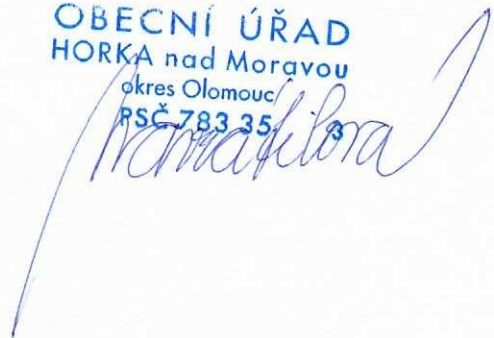 OBECNÍ ÚŘAD
HORKA nad Moravou
okres Olomouc
PSČ 783 35 3